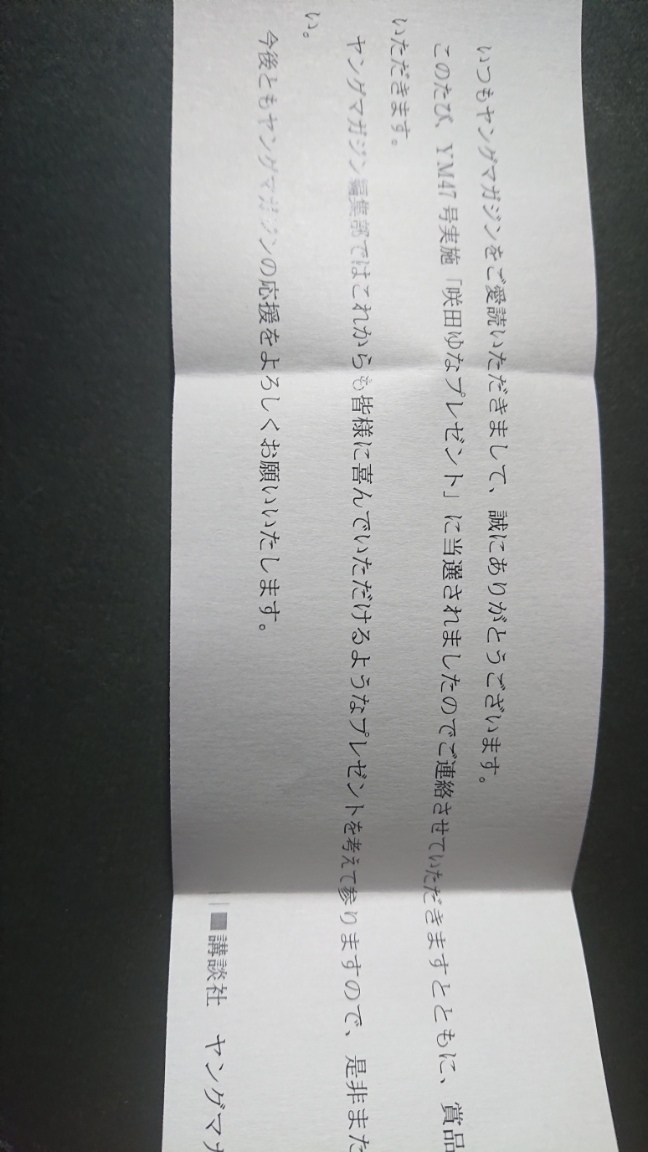 いつもヤングマガジンをご愛読いただきまして、誠にありがとうございます。
このたび、YM47号実施「咲田ゆなプレゼント」に当選されましたのでご連絡させていただきますとともに、賞品
いただきます。
ヤングマガジン編集部ではこれからも皆様に喜んでいただけるようなプレゼントを考えて参りますので、是非また
い。
今後ともヤングマガジンの応援をよろしくお願いいたします。
■講談社　ヤングマガ